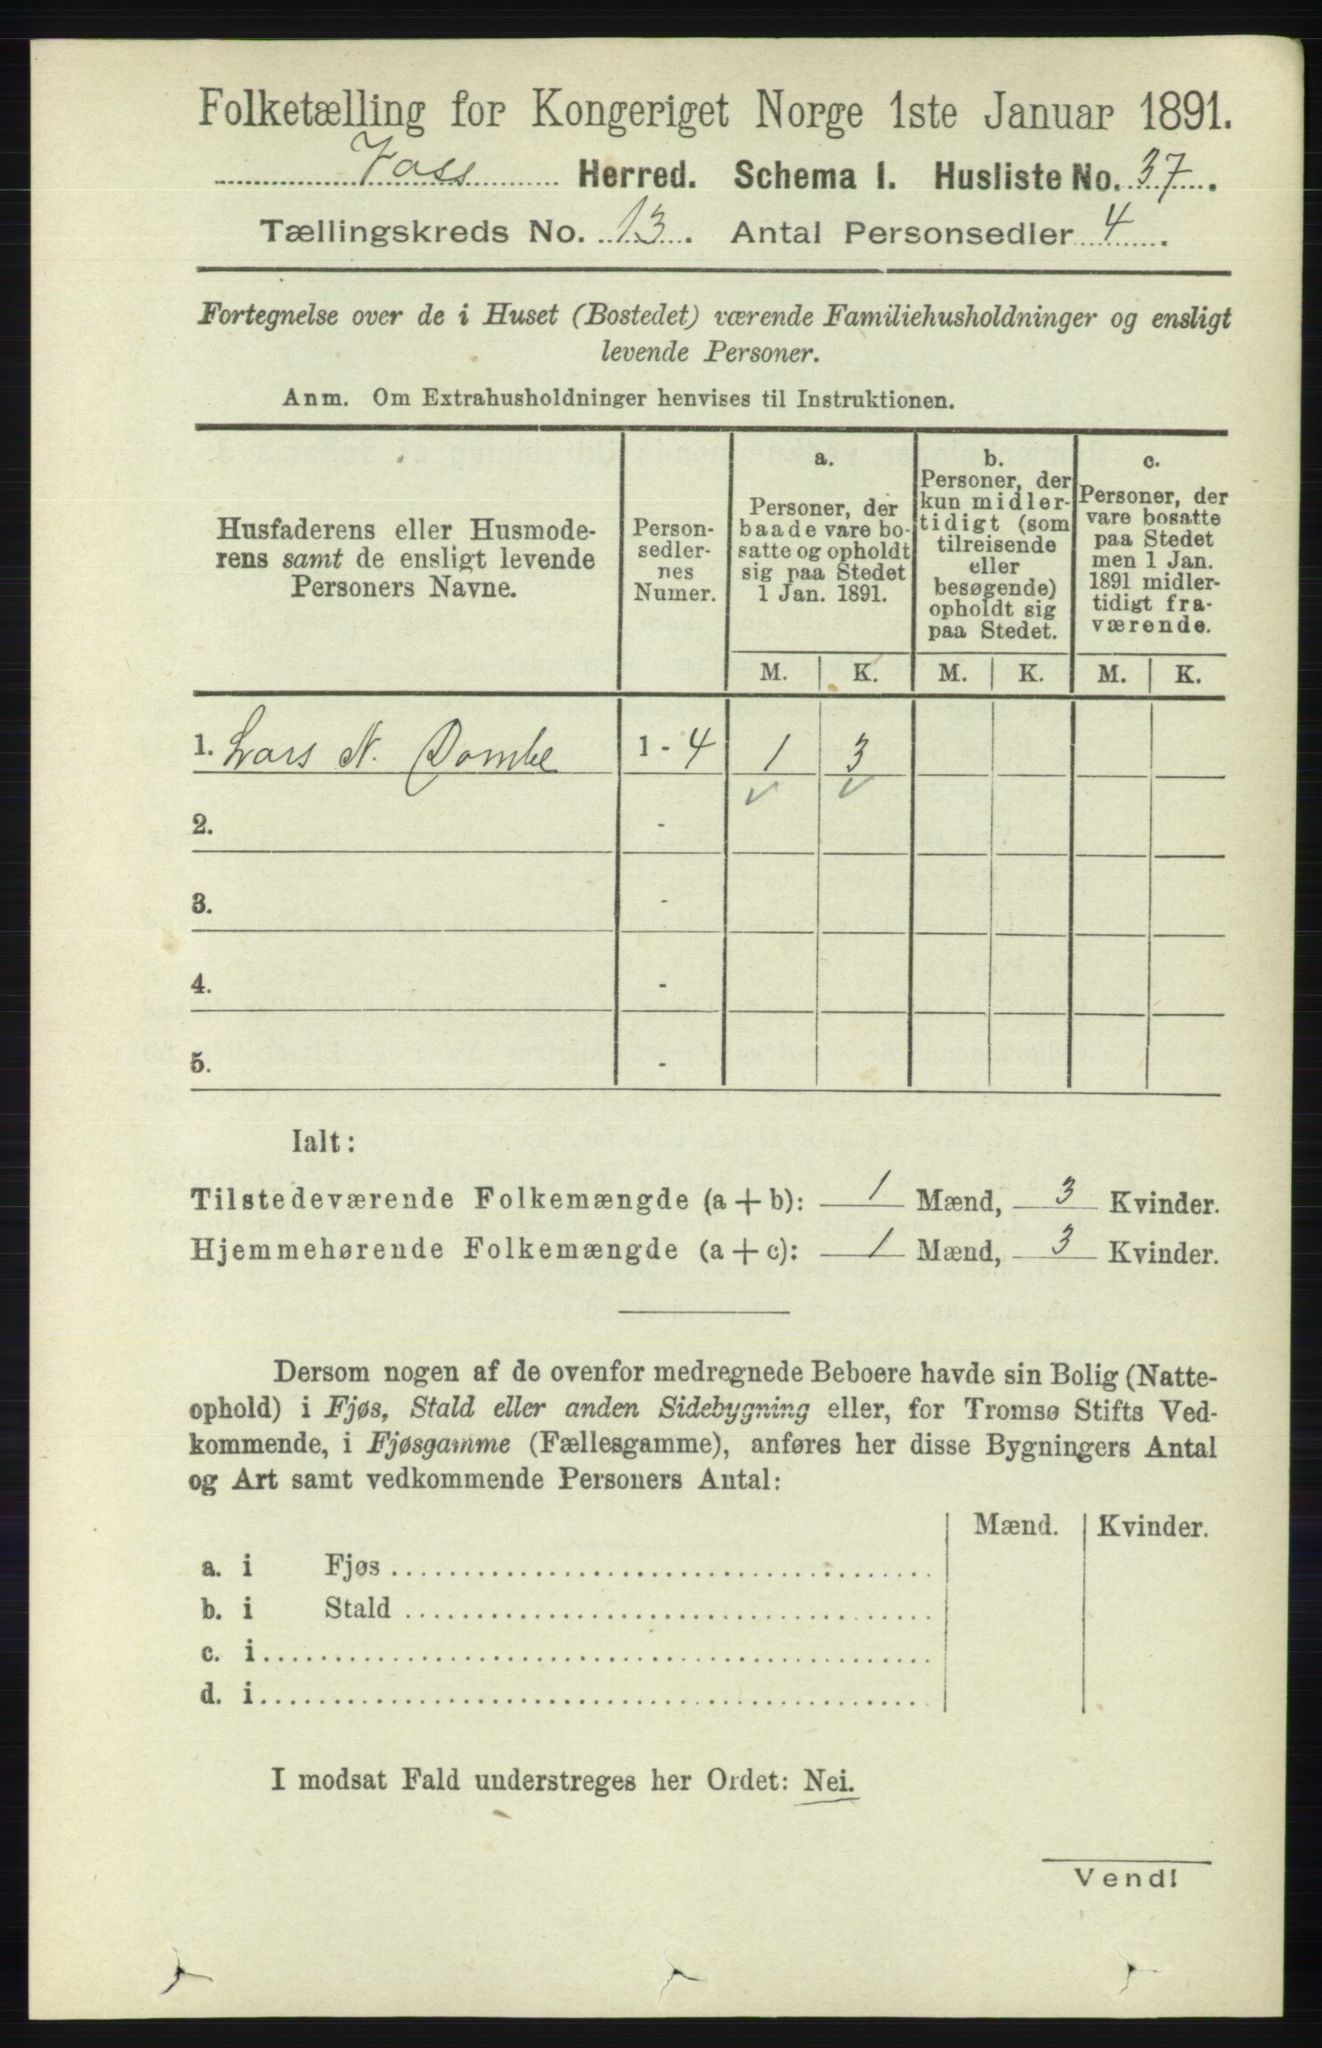 Folketælling for Kongeriget Norge 1ste Januar 1891.
Voss Herred. Schema 1. Husliste No. 37.
Tællingskreds No. 13. Antal Personsedler 4.
Fortegnelse over de i Huset (Bostedet) værende Familiehusholdninger og ensligt
levende Personer.
Anm. Om Extrahusholdninger henvises til Instruktionen.
Husfaderens eller Husmode-
rens samt de ensligt levende
Personers Navne.
Person-
sedler-
nes
Numer.
a.
Personer, der
baade vare bo-
satte og opholdt
sig paa Stedet
1 Jan. 1891.
b.
Personer, der
kun midler-
tidigt (som
tilreisende
eller
besøgende)
opholdt sig
paa Stedet.
c.
Personer, der
vare bosatte
paa Stedet
men 1 Jan.
1891 midler-
tidigt fra-
værende.
M. K. M. K. M. K.
1. Lars N. 1 - 4 1 3
2. -
3. -
4. -
5. -
Ialt:
Tilstedeværende Folkemængde (a + b): 1 Mænd, 3 Kvinder.
Hjemmehørende Folkemængde (a + c): 1 Mænd, 3 Kvinder.
Dersom nogen af de ovenfor medregnede Beboere havde sin Bolig (Natte-
ophold) i Fjøs, Stald eller anden Sidebygning eller, for Tromsø Stifts Ved-
kommende, i Fjøsgamme (Fællesgamme), anføres her disse Bygningers Antal
og Art samt vedkommende Personers Antal:
Mænd. Kvinder.
a. i Fjøs
b. i Stald
c. i
d. i
I modsat Fald understreges her Ordet: Nei.
Vend!